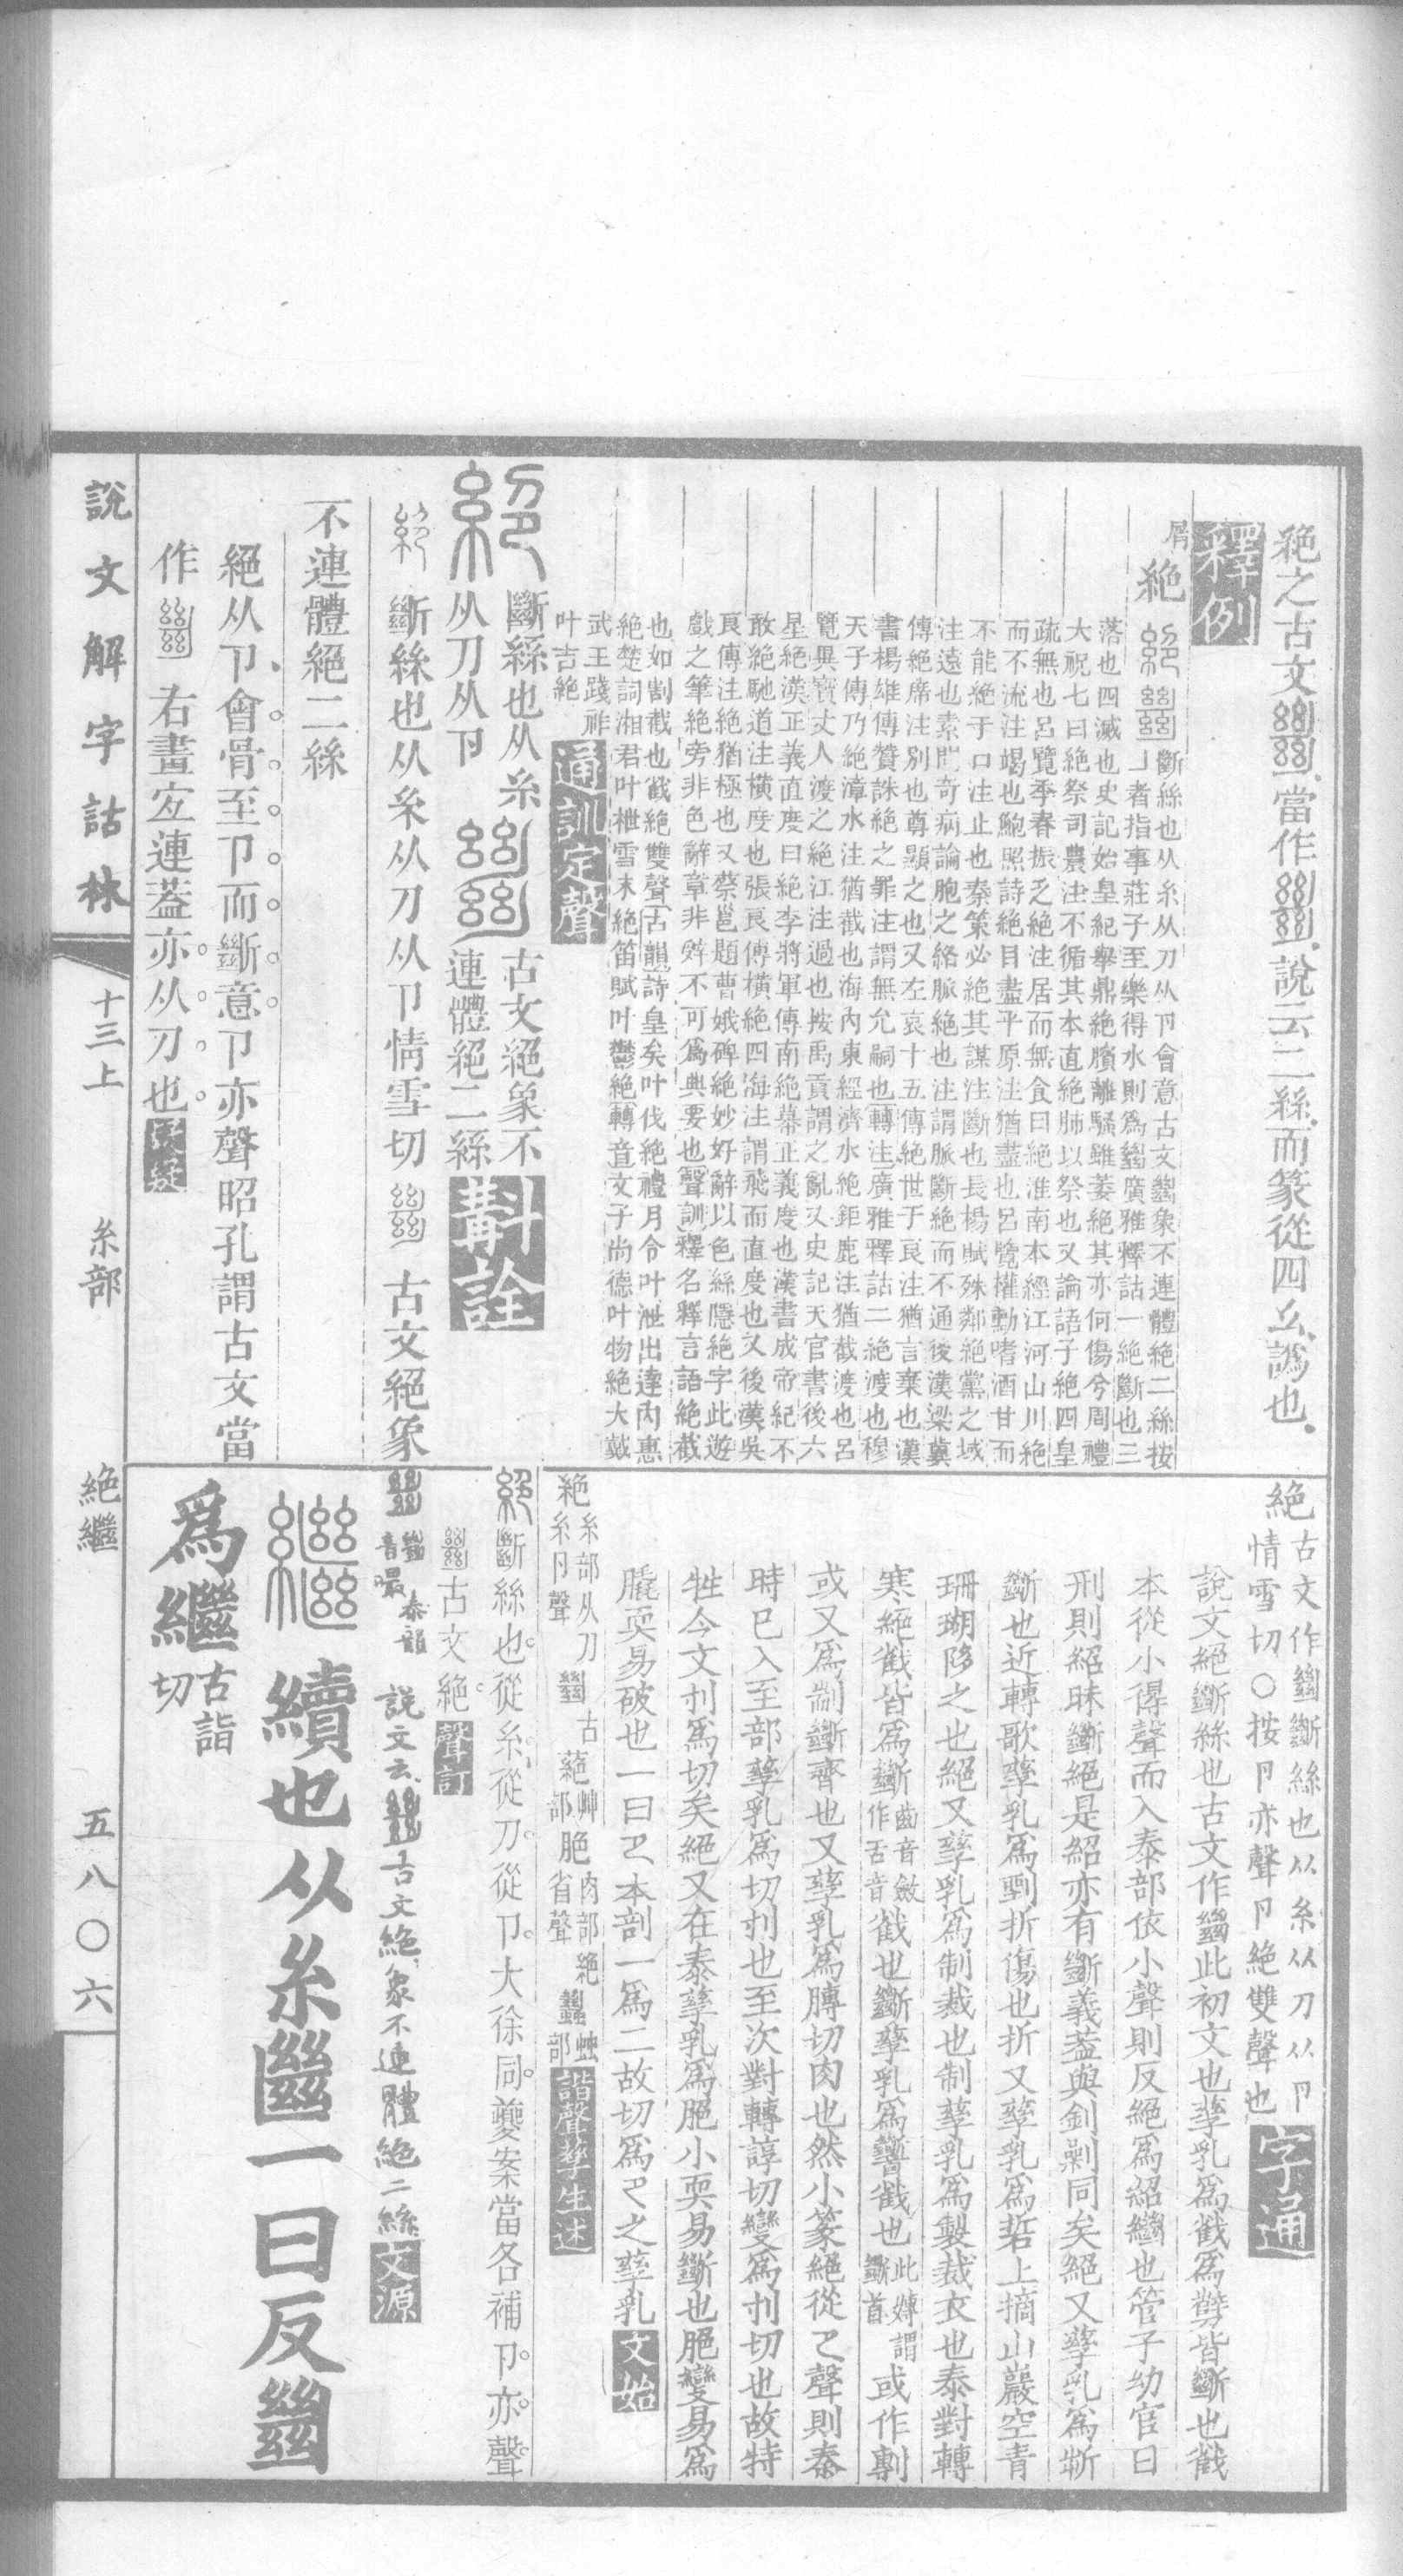 絕之古文𢇍當作𢇍說云二絲而篆從四幺譌也
釋例
屑絕
斷絲也从糸从刀从卩會意古文𢇍象不連體絕二絲按
𠃊者指事莊子至樂得水則爲𢇍廣雅釋詁一絕斷也三
落也四滅也史記始皇紀舉鼎絕臏離騷雖萎絕其亦何傷兮周禮
大祝七曰絕祭司農注不循其本直絕肺以祭也又論語子絕四皇
疏無也呂覽季春振乏絕注居而無食曰絕淮南本經江河山川絕
而不流注竭也鮑照詩絕目盡平原注猶盡也呂覽權勳嗜酒甘而
不能絕于口注止也秦策必絕其謀注斷也長楊賦殊鄰絕黨之域
注遠也素問奇病論胞之絡脈絕也注謂脈斷絕而不通後漢梁冀
傳絕席注別也尊顯之也又左哀十五傳絕世于良注猶言棄也漢
書楊雄傳贊誅絕之罪注謂無允嗣也轉注廣雅釋詁二絕渡也穆
天子傳乃絕漳水注猶截也海內東經濟水絕鉅鹿注猶截渡也呂
覽異寶丈人渡之絕江注過也按禹貢謂之亂又史記天官書後六
星絕漢正義直度曰絕李將軍傳南絕幕正義度也漢書成帝紀不
敢絕馳道注橫度也張良傳橫絕四海注謂飛而直度也又後漢吳
良傳注絕猶極也又蔡邕題曹娥碑絕妙好辭以色絲隱絕字此遊
戲之筆絕旁非色辭章非辤不可爲典要也聲訓釋名釋言語絕截
也如割截也截絕雙聲古韻詩皇矣叶伐絕禮月令叶泄出達內惠
絕楚詞湘君叶枻雪末絕笛賦叶鬱絕轉音文子尚德叶物絕大戴
武王踐祚
叶吉絕
通訓定聲
斷絲也从糸
从刀从卩
古文絕象不
連體絕二絲
斠詮
斷絲也从糸从刀从卩情雪切 古文絕象
不連體絕二絲
絕从卩會骨至卩而斷意卩亦聲昭孔謂古文當
作 右畫宐連蓋亦从刀也
絕古文作𢇍斷絲也从糸从刀从卩
情雪切○按卩亦聲卩絕雙聲也
字通
說文絕斷絲也古文作𢇍此初文也孳乳爲截爲㔎皆斷也截
本從小得聲而入泰部依小聲則反絕爲紹繼也管子幼官曰
刑則紹昧斷絕是紹亦有斷義蓋與釗剿同矣絕又孳乳爲斯
斷也近轉歌孳乳爲剄折傷也折又孳乳爲硩上摘山巖空青
珊瑚陊之也絕又孳乳爲制裁也制孳乳爲製裁衣也泰對轉
寒絕截皆爲斷齒音斂作舌音截也斷孳乳爲䜝截也此䜝謂斷首或作剸
或又爲剬斷齊也又孳乳爲膞切肉也然小篆絕從㔾聲則泰
時已入至部孳乳爲切刌也至次對轉諄切變爲刌切也故特
牲今文刌爲切矣絕又在泰孳乳爲脃小耎易斷也脃變易爲
膬耎易破也一曰㔾本剖一爲二故切爲㔾之孳乳
文始
絕糸部从刀糸卩聲 𢇍古 蕝艸部 脃肉部絕省聲 蠿䖵部
諧聲孳生述
斷絲也從糸從刀從卩大徐同夔案當各補卩亦聲
古文絕
聲訂
泰韻音㝡 說文云𢇍古文絕象不連體絕二絲
文源
繼續也从糸㡭一曰反𢇍
爲繼古詣切
說文解字詁林
十三上
糸部
絕繼
五八〇六